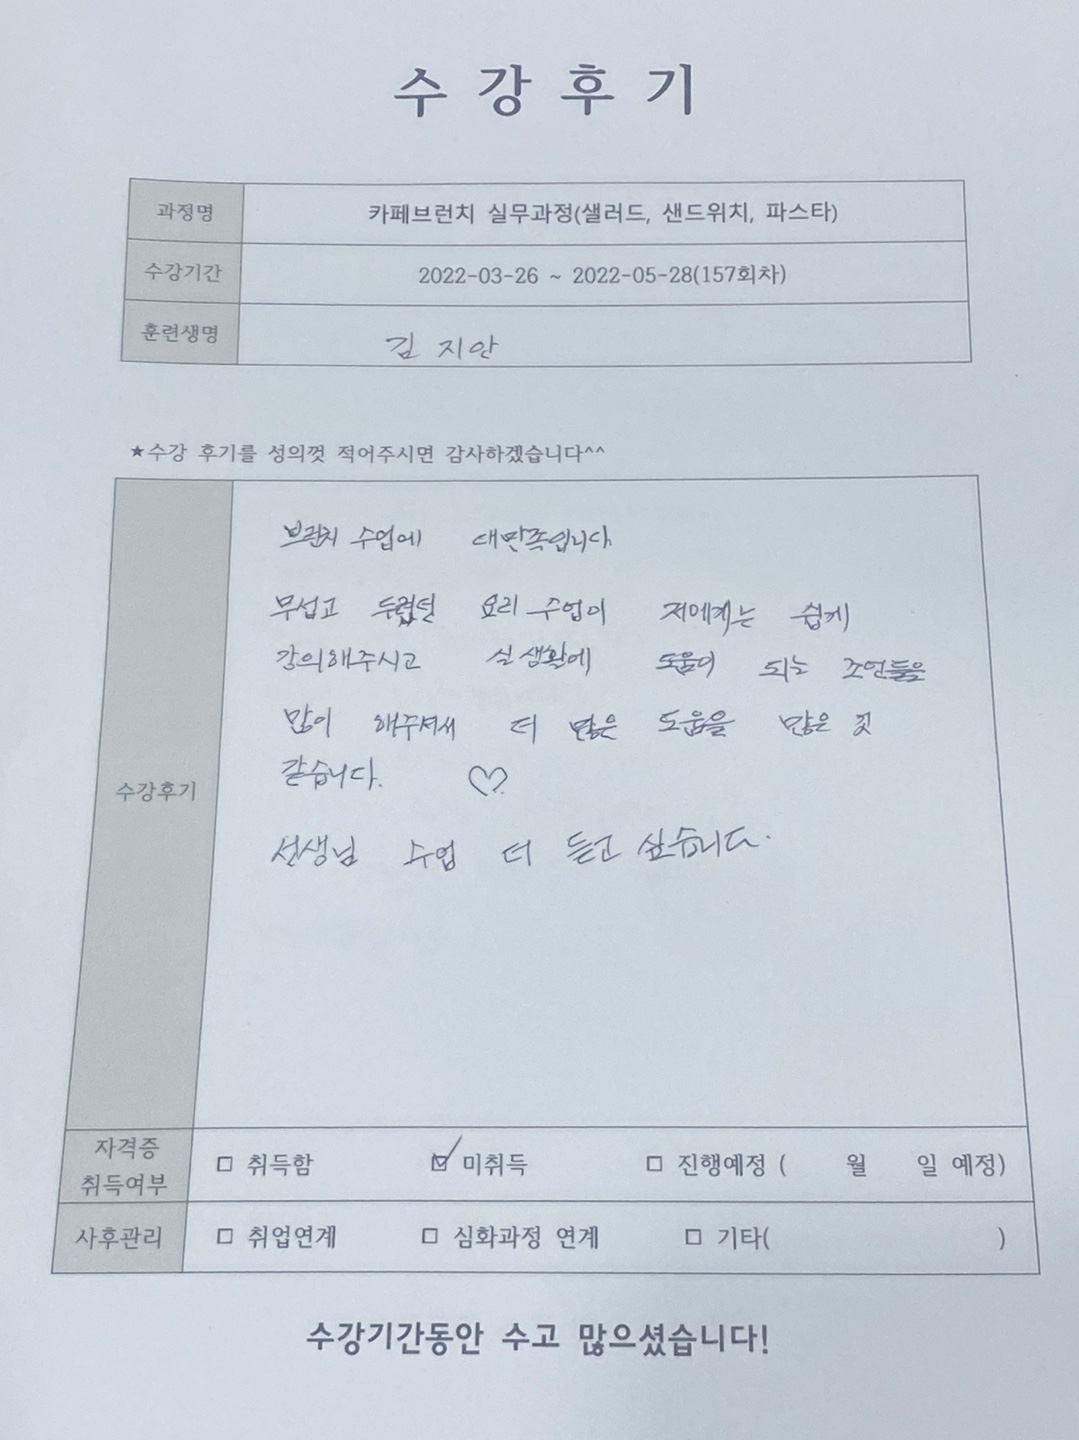 수강후기
과정명 카페브런치 실무과정(샐러드, 샌드위치, 파스타)
수강기간 2022-03-26 ~ 2022-05-28(157회차)
훈련생명 김 지안
★수강 후기를 성의껏 적어주시면 감사하겠습니다^^
수강후기
브런치 수업에 대만족입니다.
무섭고 두렵던 요리 수업이 저에게는 쉽게
강의해주시고 실생활에 도움이 되는 조언들을
많이 해주셔서 더 많은 도움을 많은 것
같습니다. ♡
선생님 수업 더 듣고 싶습니다.
자격증 취득여부 □ 취득함 ☑ 미취득 □ 진행예정 ( 월 일 예정)
사후관리 □ 취업연계 □ 심화과정 연계 □ 기타( )
수강기간동안 수고 많으셨습니다!